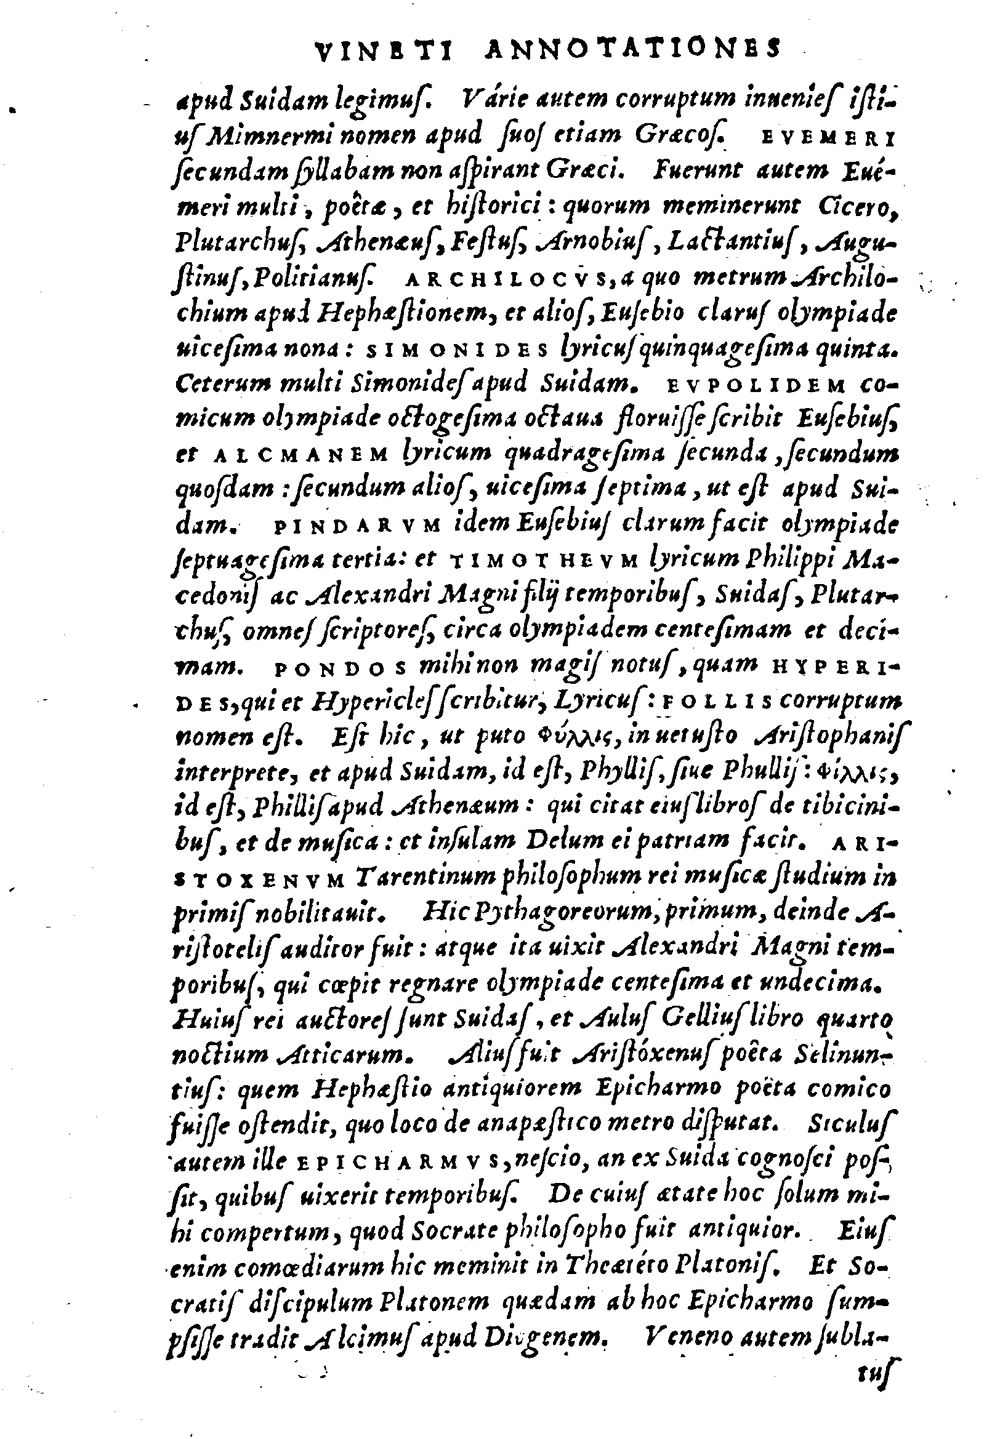 VINETI ANNOTATIONES
apud Suidam legimuſ. Várie autem corruptum inuenieſ iſti-
uſ Mimnermi nomen apud ſuoſ etiam Græcoſ. EVEMERI
ſecundam ſyllabam non aſpirant Græci. Fuerunt autem Eué-
meri multi, poêtæ, et hiſtorici: quorum meminerunt Cicero,
Plutarchuſ, Athenæuſ, Feſtuſ, Arnobiuſ, Lactantiuſ, Augu-
ſtinuſ, Politianuſ. ARCHILOCVS, a quo metrum Archilo-
chium apud Hephæſtionem, et alioſ, Euſebio claruſ olympiade
uiceſima nona: SIMONIDES lyricuſ quinquageſima quinta.
Ceterum multi Simonideſ apud Suidam. EVPOLIDEM co-
micum olympiade octogeſima octaua floruiſſe ſcribit Euſebiuſ,
et ALCMANEM lyricum quadrageſima ſecunda, ſecundum
quoſdam: ſecundum alioſ, uiceſima ſeptima, ut eſt apud Sui-
dam. PINDARVM idem Euſebiuſ clarum facit olympiade
ſeptuageſima tertia: et TIMOTHEVM lyricum Philippi Ma-
cedoniſ ac Alexandri Magni filij temporibuſ, Suidaſ, Plutar-
chuſ, omneſ ſcriptoreſ, circa olympiadem centeſimam et deci-
mam. PONDOS mihi non magiſ notuſ, quam HYPERI-
DES, qui et Hypericleſ ſcribitur, Lyricuſ: FOLLIS corruptum
nomen eſt. Eſt hic, ut puto Φύλλις, in uetuſto Ariſtophaniſ
interprete, et apud Suidam, id eſt, Phylliſ, ſiue Phulliſ: Φίλλις,
id eſt, Philliſ apud Athenæum: qui citat eiuſ libroſ de tibicini-
buſ, et de muſica: et inſulam Delum ei patriam facit. ARI-
STOXENVM Tarentinum philoſophum rei muſicæ ſtudium in
primiſ nobilitauit. Hic Pythagoreorum, primum, deinde A-
riſtoteliſ auditor fuit: atque ita uixit Alexandri Magni tem-
poribuſ, qui cœpit regnare olympiade centeſima et undecima.
Huiuſ rei auctoreſ ſunt Suidaſ, et Auluſ Gelliuſ libro quarto
noctium Atticarum. Aliuſ fuit Ariſtóxenuſ poêta Selinun-
tiuſ: quem Hephæſtio antiquiorem Epicharmo poëta comico
fuiſſe oſtendit, quo loco de anapæſtico metro diſputat. Siculuſ
autem ille EPICHARMVS, neſcio, an ex Suida cognoſci poſ-
ſit, quibuſ uixerit temporibuſ. De cuiuſ ætate hoc ſolum mi-
hi compertum, quod Socrate philoſopho fuit antiquior. Eiuſ
enim comœdiarum hic meminit in Theætéto Platoniſ. Et So-
cratiſ diſcipulum Platonem quædam ab hoc Epicharmo ſum-
pſiſſe tradit Alcimuſ apud Diogenem. Veneno autem ſubla-
tuſ